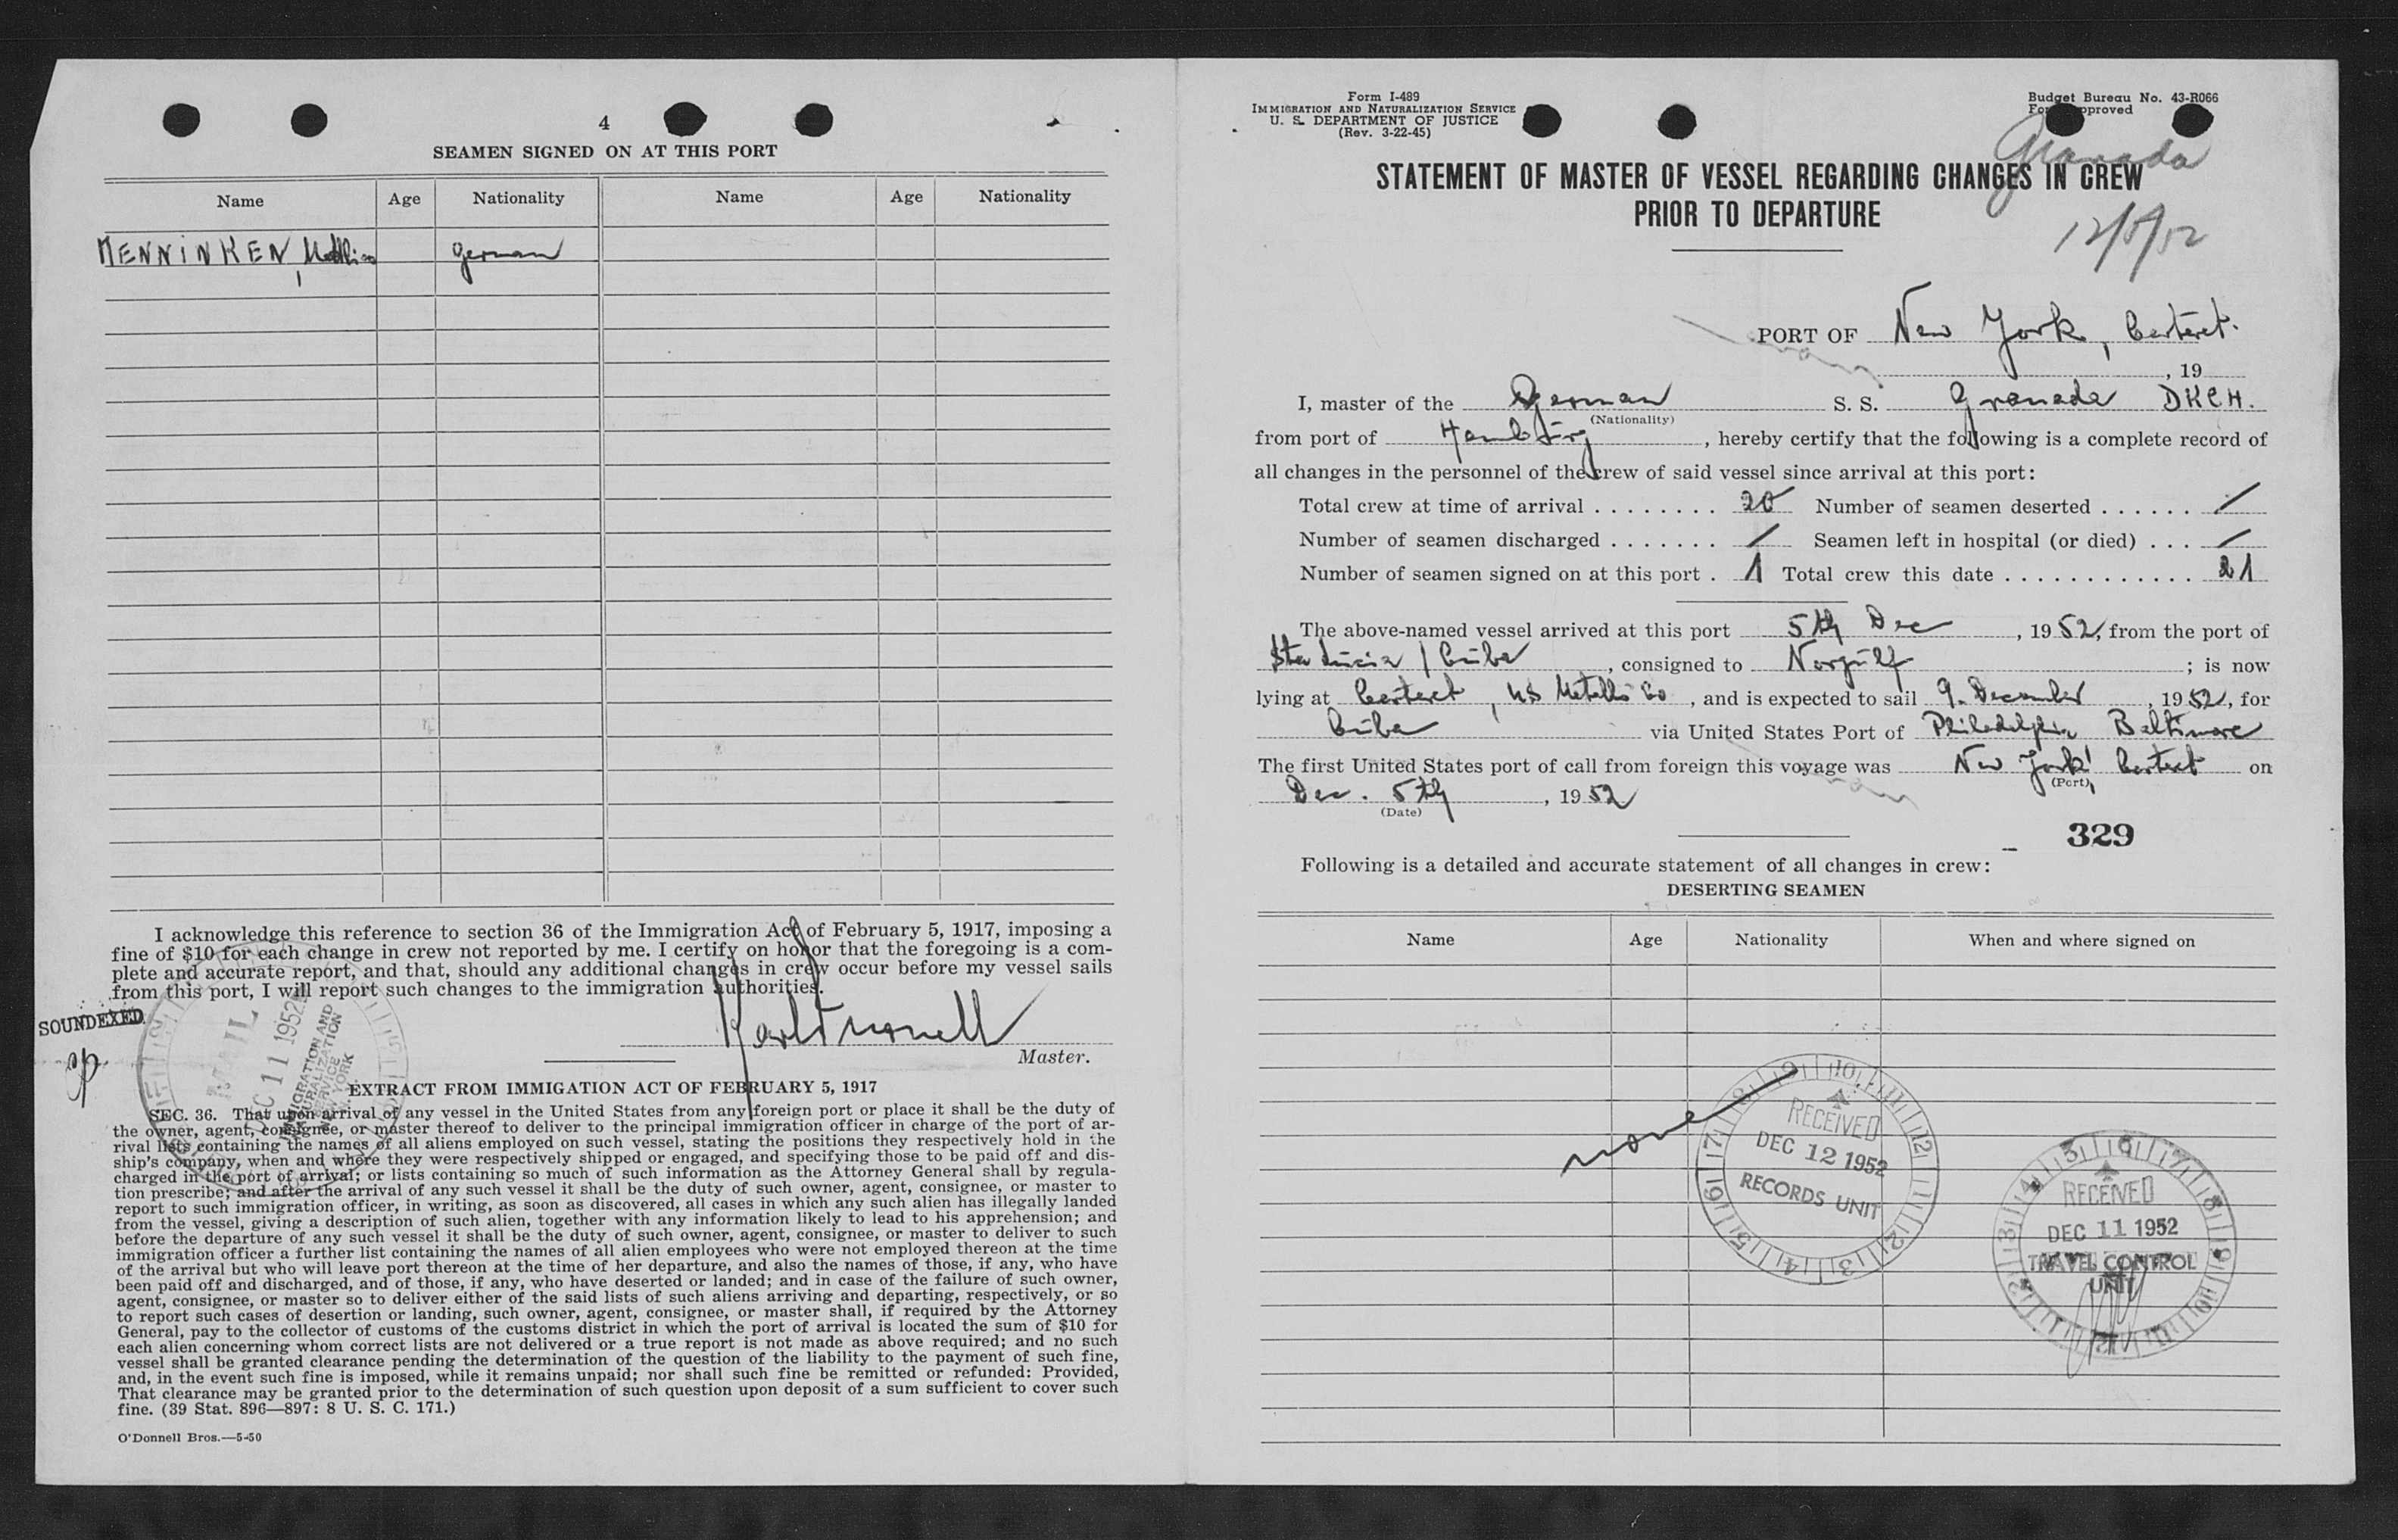 4
SEAMEN SIGNED ON AT THIS PORT
Name Age Nationality Name Age Nationality
MENNINKEN, german
I acknowledge this reference to section 36 of the Immigration Act of February 5, 1917, imposing a
fine of $10 for each change in crew not reported by me. I certify on honor that the foregoing is a com-
plete and accurate report, and that, should any additional changes in crew occur before my vessel sails
from this port, I will report such changes to the immigration authorities.
SOUNDEXED
MAIL
DEC 11 1952
IMMIGRATION AND
NATURALIZATION
SERVICE
NEW YORK
Master.
EXTRACT FROM IMMIGATION ACT OF FEBRUARY 5, 1917
SEC. 36. That upon arrival of any vessel in the United States from any foreign port or place it shall be the duty of
the owner, agent, consignee, or master thereof to deliver to the principal immigration officer in charge of the port of ar-
rival lists containing the names of all aliens employed on such vessel, stating the positions they respectively hold in the
ship's company, when and where they were respectively shipped or engaged, and specifying those to be paid off and dis-
charged in the port of arrival; or lists containing so much of such information as the Attorney General shall by regula-
tion prescribe; and after the arrival of any such vessel it shall be the duty of such owner, agent, consignee, or master to
report to such immigration officer, in writing, as soon as discovered, all cases in which any such alien has illegally landed
from the vessel, giving a description of such alien, together with any information likely to lead to his apprehension; and
before the departure of any such vessel it shall be the duty of such owner, agent, consignee, or master to deliver to such
immigration officer a further list containing the names of all alien employees who were not employed thereon at the time
of the arrival but who will leave port thereon at the time of her departure, and also the names of those, if any, who have
been paid off and discharged, and of those, if any, who have deserted or landed; and in case of the failure of such owner,
agent, consignee, or master so to deliver either of the said lists of such aliens arriving and departing, respectively, or so
to report such cases of desertion or landing, such owner, agent, consignee, or master shall, if required by the Attorney
General, pay to the collector of customs of the customs district in which the port of arrival is located the sum of $10 for
each alien concerning whom correct lists are not delivered or a true report is not made as above required; and no such
vessel shall be granted clearance pending the determination of the question of the liability to the payment of such fine,
and, in the event such fine is imposed, while it remains unpaid; nor shall such fine be remitted or refunded: Provided,
That clearance may be granted prior to the determination of such question upon deposit of a sum sufficient to cover such
fine. (39 Stat. 896—897: 8 U. S. C. 171.)
O'Donnell Bros.—5-50
Form I-489
IMMIGRATION AND NATURALIZATION SERVICE
U. S. DEPARTMENT OF JUSTICE
(Rev. 3-22-45)
Budget Bureau No. 43-R066
Form approved
Granada
STATEMENT OF MASTER OF VESSEL REGARDING CHANGES IN CREW
PRIOR TO DEPARTURE
12/5/52
PORT OF New York, Carteret.
, 19
I, master of the German S. S. Granada DKCH.
(Nationality)
from port of Hamburg, hereby certify that the following is a complete record of
all changes in the personnel of the crew of said vessel since arrival at this port:
Total crew at time of arrival ........ 20 Number of seamen deserted ...... /
Number of seamen discharged ....... / Seamen left in hospital (or died) ... /
Number of seamen signed on at this port . 1 Total crew this date ............ 21
The above-named vessel arrived at this port 5th Dec, 1952, from the port of
Sta Lucia / Cuba, consigned to Norgulf; is now
lying at Carteret, US Metalls Co, and is expected to sail 9. December, 1952, for
Cuba via United States Port of Philadelphia Baltimore
The first United States port of call from foreign this voyage was New York, Carteret on
(Port)
Dec. 5th, 1952
(Date)
329
Following is a detailed and accurate statement of all changes in crew:
DESERTING SEAMEN
Name Age Nationality When and where signed on
none
RECEIVED
DEC 12 1952
RECORDS UNIT
RECEIVED
DEC 11 1952
TRAVEL CONTROL
UNIT